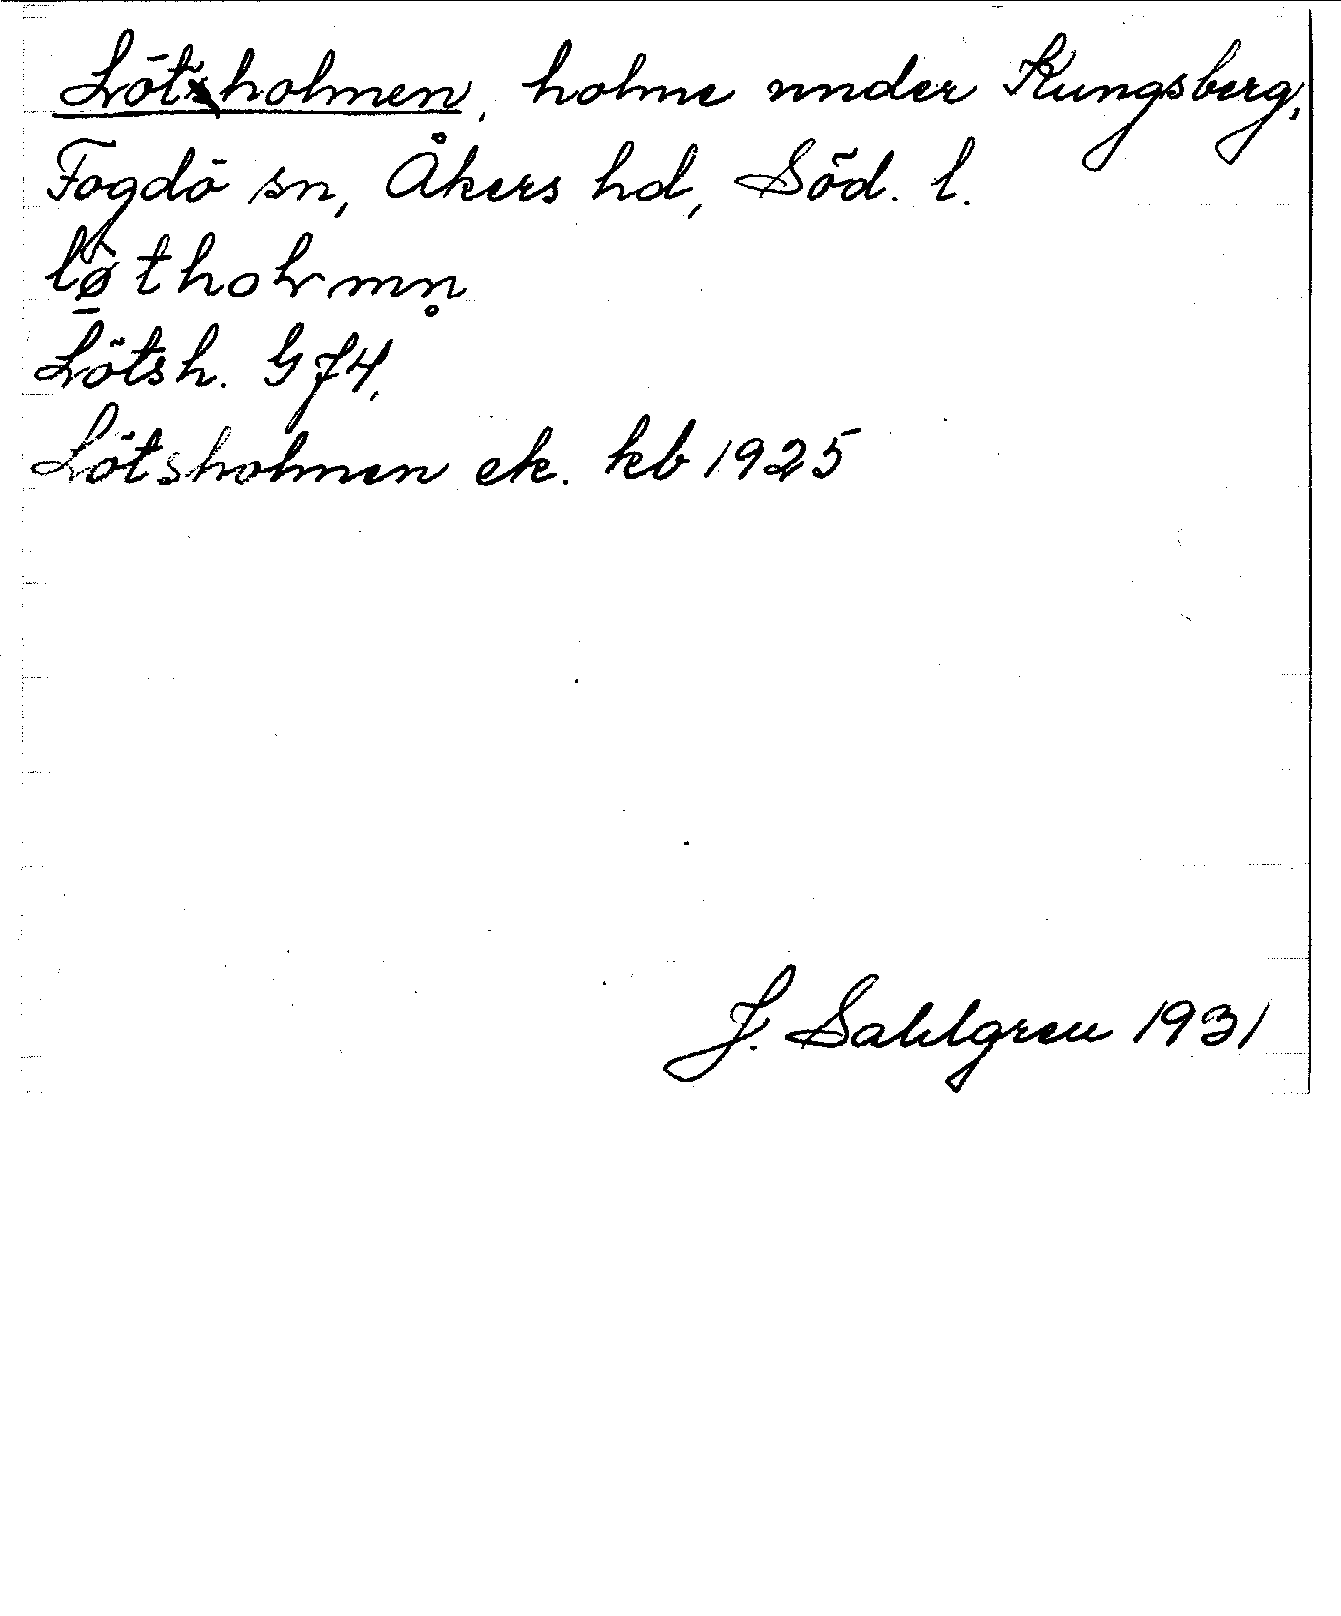 Lötholmen, holme under Kungsberg,
Fogdö sn, Åkers hd, Söd. l.
Lötsh. GJ4.
Lötsholmen ek. kb 1925
J. Sahlgren 1931